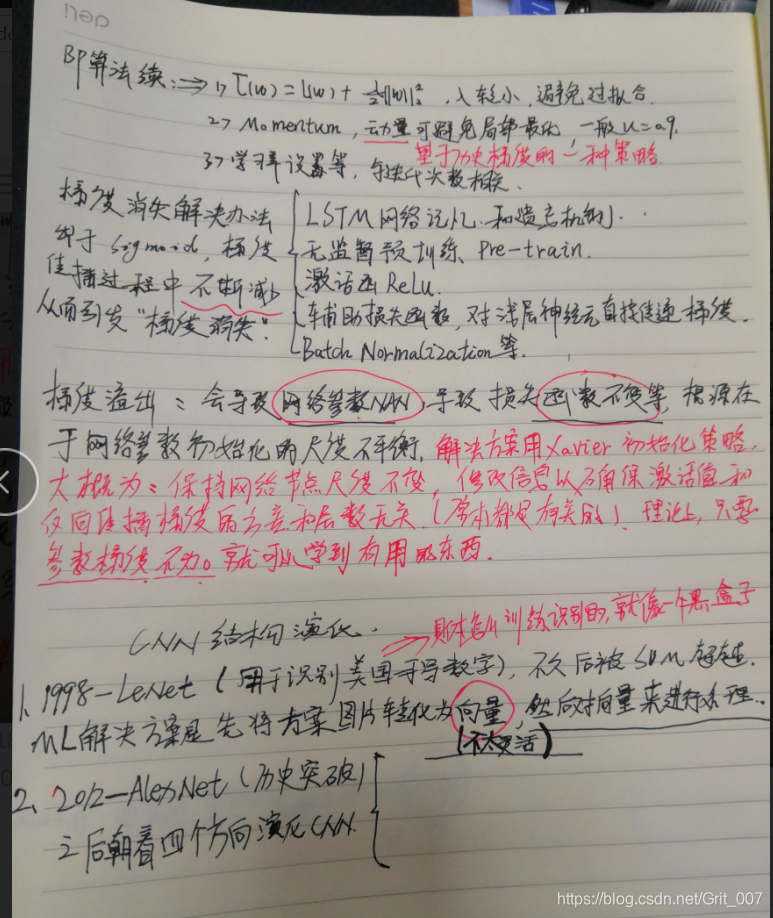 BP算法续:⇒ 1> J(w)=L(w)+ λ/2||w||²₂ ,λ较小,避免过拟合.
2> Momentum,动量可避免局部最优,一般u=0.9.
基于历史梯度的一种策略.
3>学习率设置等,与迭代次数相关.
梯度消失解决办法
由于Sigmoid,梯度
传播过程中不断减少
从而引发"梯度消失".
LSTM网络记忆和遗忘机制.
无监督预训练 Pre-train.
激活函Relu.
辅助损失函数,对浅层神经元直接传递梯度.
Batch Normalization等.
梯度溢出:会导致网络参数NAN,导致损失函数不变等,根源在
于网络参数初始化的尺度不平衡.解决方案用Xavier初始化策略.
大概为:保持网络节点尺度不变,修改信息以确保激活值和
反向传播梯度的方差和层数无关.(原本都是有关的).理论上,只要
参数梯度不为0就可以学到有用的东西.
CNN结构演化.
训练识别的,就像一个黑盒子
1、1998-LeNet(用于识别美国手写数字),不久后被SVM超越.
ML解决方案是先将方案图片转化为向量,然后对向量来进行处理..
(不太灵活)
2、2012-AlexNet(历史突破)
之后朝着四个方向演化CNN.
https://blog.csdn.net/Grit_007